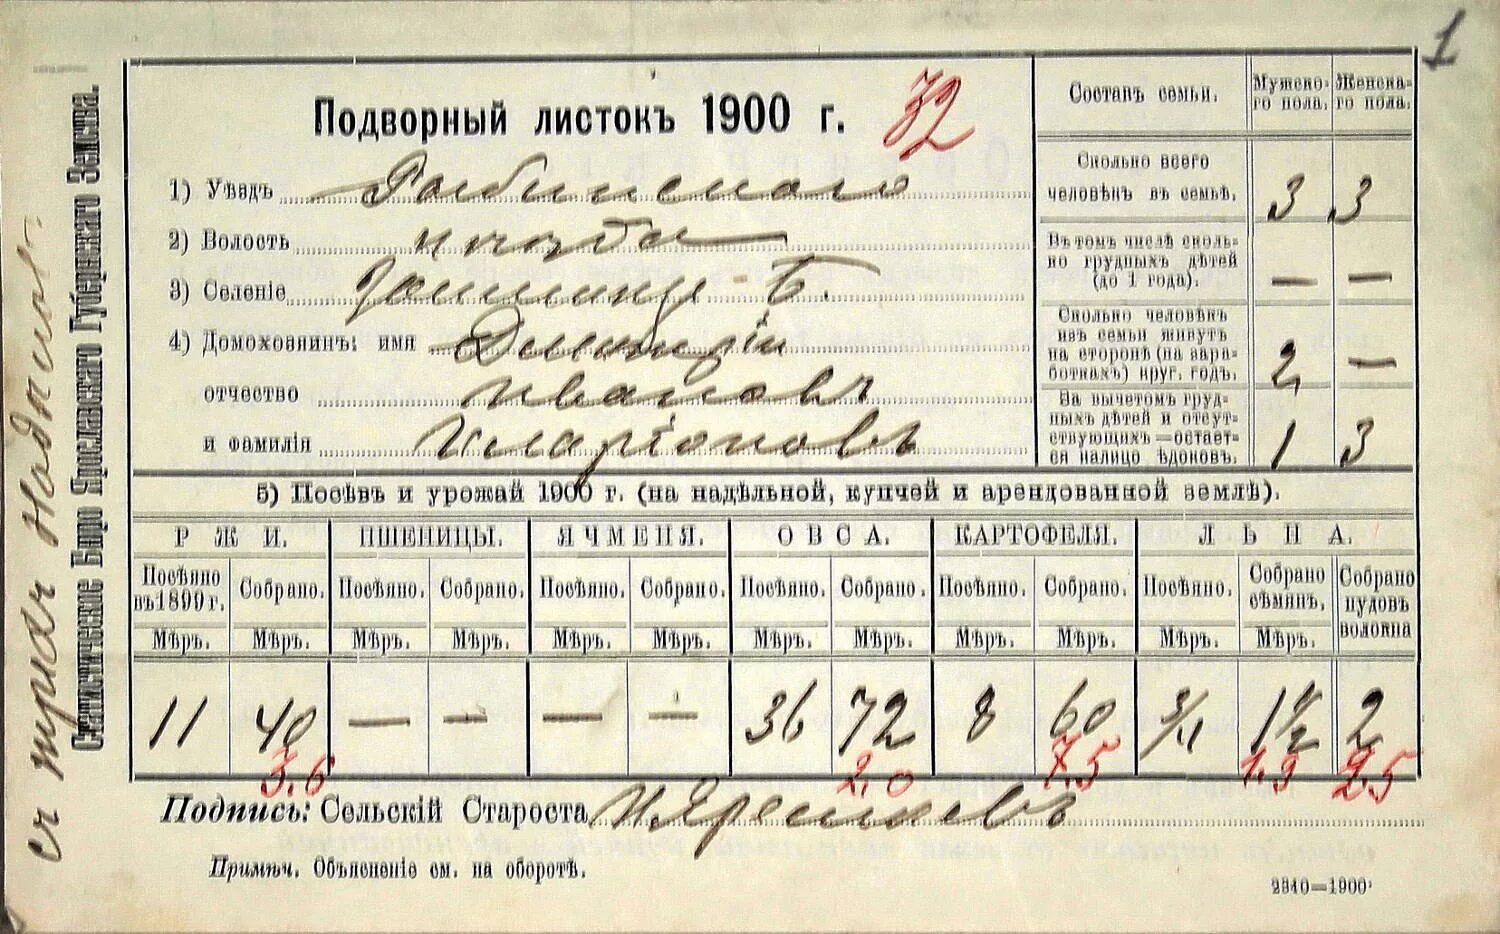 1
Подворный листокъ 1900 г. 32
1) Уѣздъ Рыбинскаго
2) Волость
3) Селеніе
4) Домохозяинъ: имя Дмитрій
отчество Ивановъ
и фамилія Иларіоновъ
Составъ семьи. Мужско-го пола. Женска-го пола.
Сколько всего
человѣкъ въ семьѣ. 3 3
Въ томъ числѣ сколь-
ко грудныхъ дѣтей
(до 1 года). — —
Сколько человѣкъ
изъ семьи живутъ
на сторонѣ (на зара-
боткахъ) круг. годъ. 2 —
За вычетомъ груд-
ныхъ дѣтей и отсут-
ствующихъ — остает-
ся налицо ѣдоковъ. 1 3
5) Посѣвъ и урожай 1900 г. (на надѣльной, купчей и арендованной землѣ).
РЖИ. ПШЕНИЦЫ. ЯЧМЕНЯ. ОВСА. КАРТОФЕЛЯ. ЛЬНА.
Посѣяно въ 1899 г. Собрано. Посѣяно. Собрано. Посѣяно. Собрано. Посѣяно. Собрано. Посѣяно. Собрано. Посѣяно. Собрано сѣмянъ. Собрано пудовъ волокна
Мѣръ. Мѣръ. Мѣръ. Мѣръ. Мѣръ. Мѣръ. Мѣръ. Мѣръ. Мѣръ. Мѣръ. Мѣръ. Мѣръ.
11 40 — — — — 36 72 8 60 3/4 1 1/2 2
3.6 2.0 7.5 2.5
Подпись: Сельскій Староста
Примѣч. Объясненіе см. на оборотѣ.
2340—1900
Статистическое Бюро Ярославскаго Губернскаго Земства.